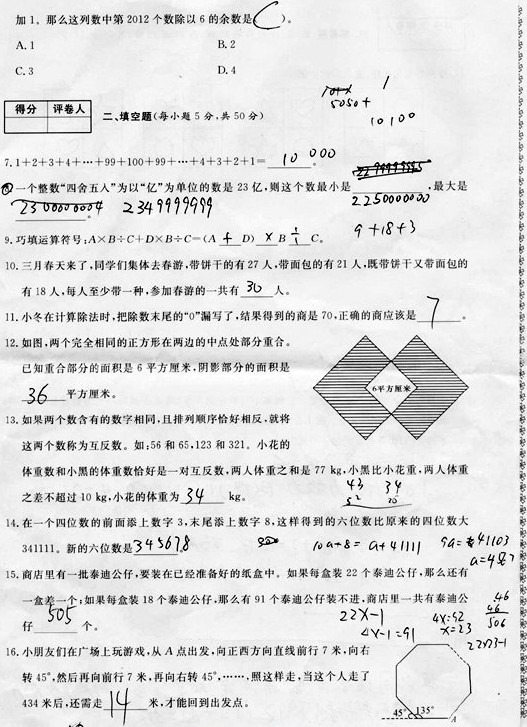 加1。那么这列数中第2012个数除以6的余数是(C)。
A.1 B.2
C.3 D.4
1
5050+
10100
得分 评卷人
二、填空题(每小题5分,共50分)
7.1+2+3+4+…+99+100+99+…+4+3+2+1=10 000。
8.一个整数“四舍五入”为以“亿”为单位的数是23亿,则这个数最小是2250000000,最大是
2349999999。
9.巧填运算符号:A×B÷C+D×B÷C=(A + D) × B ÷ C。
9+18+3
10.三月春天来了,同学们集体去春游,带饼干的有27人,带面包的有21人,既带饼干又带面包的
有18人,每人至少带一种,参加春游的一共有30人。
11.小冬在计算除法时,把除数末尾的“0”漏写了,结果得到的商是70,正确的商应该是7。
12.如图,两个完全相同的正方形在两边的中点处部分重合。
已知重合部分的面积是6平方厘米,阴影部分的面积是
36平方厘米。
6平方厘米
13.如果两个数含有的数字相同,且排列顺序恰好相反,就将
这两个数称为互反数。如:56和65,123和321。小花的
体重数和小黑的体重数恰好是一对互反数,两人体重之和是77 kg,小黑比小花重,两人体重
之差不超过10 kg,小花的体重为34 kg。
43 34
14.在一个四位数的前面添上数字3,末尾添上数字8,这样得到的六位数比原来的四位数大
341111。新的六位数是345678
10a+8=a+41111 9a=41103
15.商店里有一批泰迪公仔,要装在已经准备好的纸盒中。如果每盒装22个泰迪公仔,那么还有
一盒差一个;如果每盒装18个泰迪公仔,那么有91个泰迪公仔装不进,商店里一共有泰迪公
仔505个。
22X-1
4X-1=91
4X=92
X=23
46
46
506
22×23-1
16.小朋友们在广场上玩游戏,从A点出发,向正西方向直线前行7米,向右
转45°,然后再向前行7米,再向右转45°,……,照这样走,当这个人走了
434米后,还需走14米,才能回到出发点。
45° 135° A